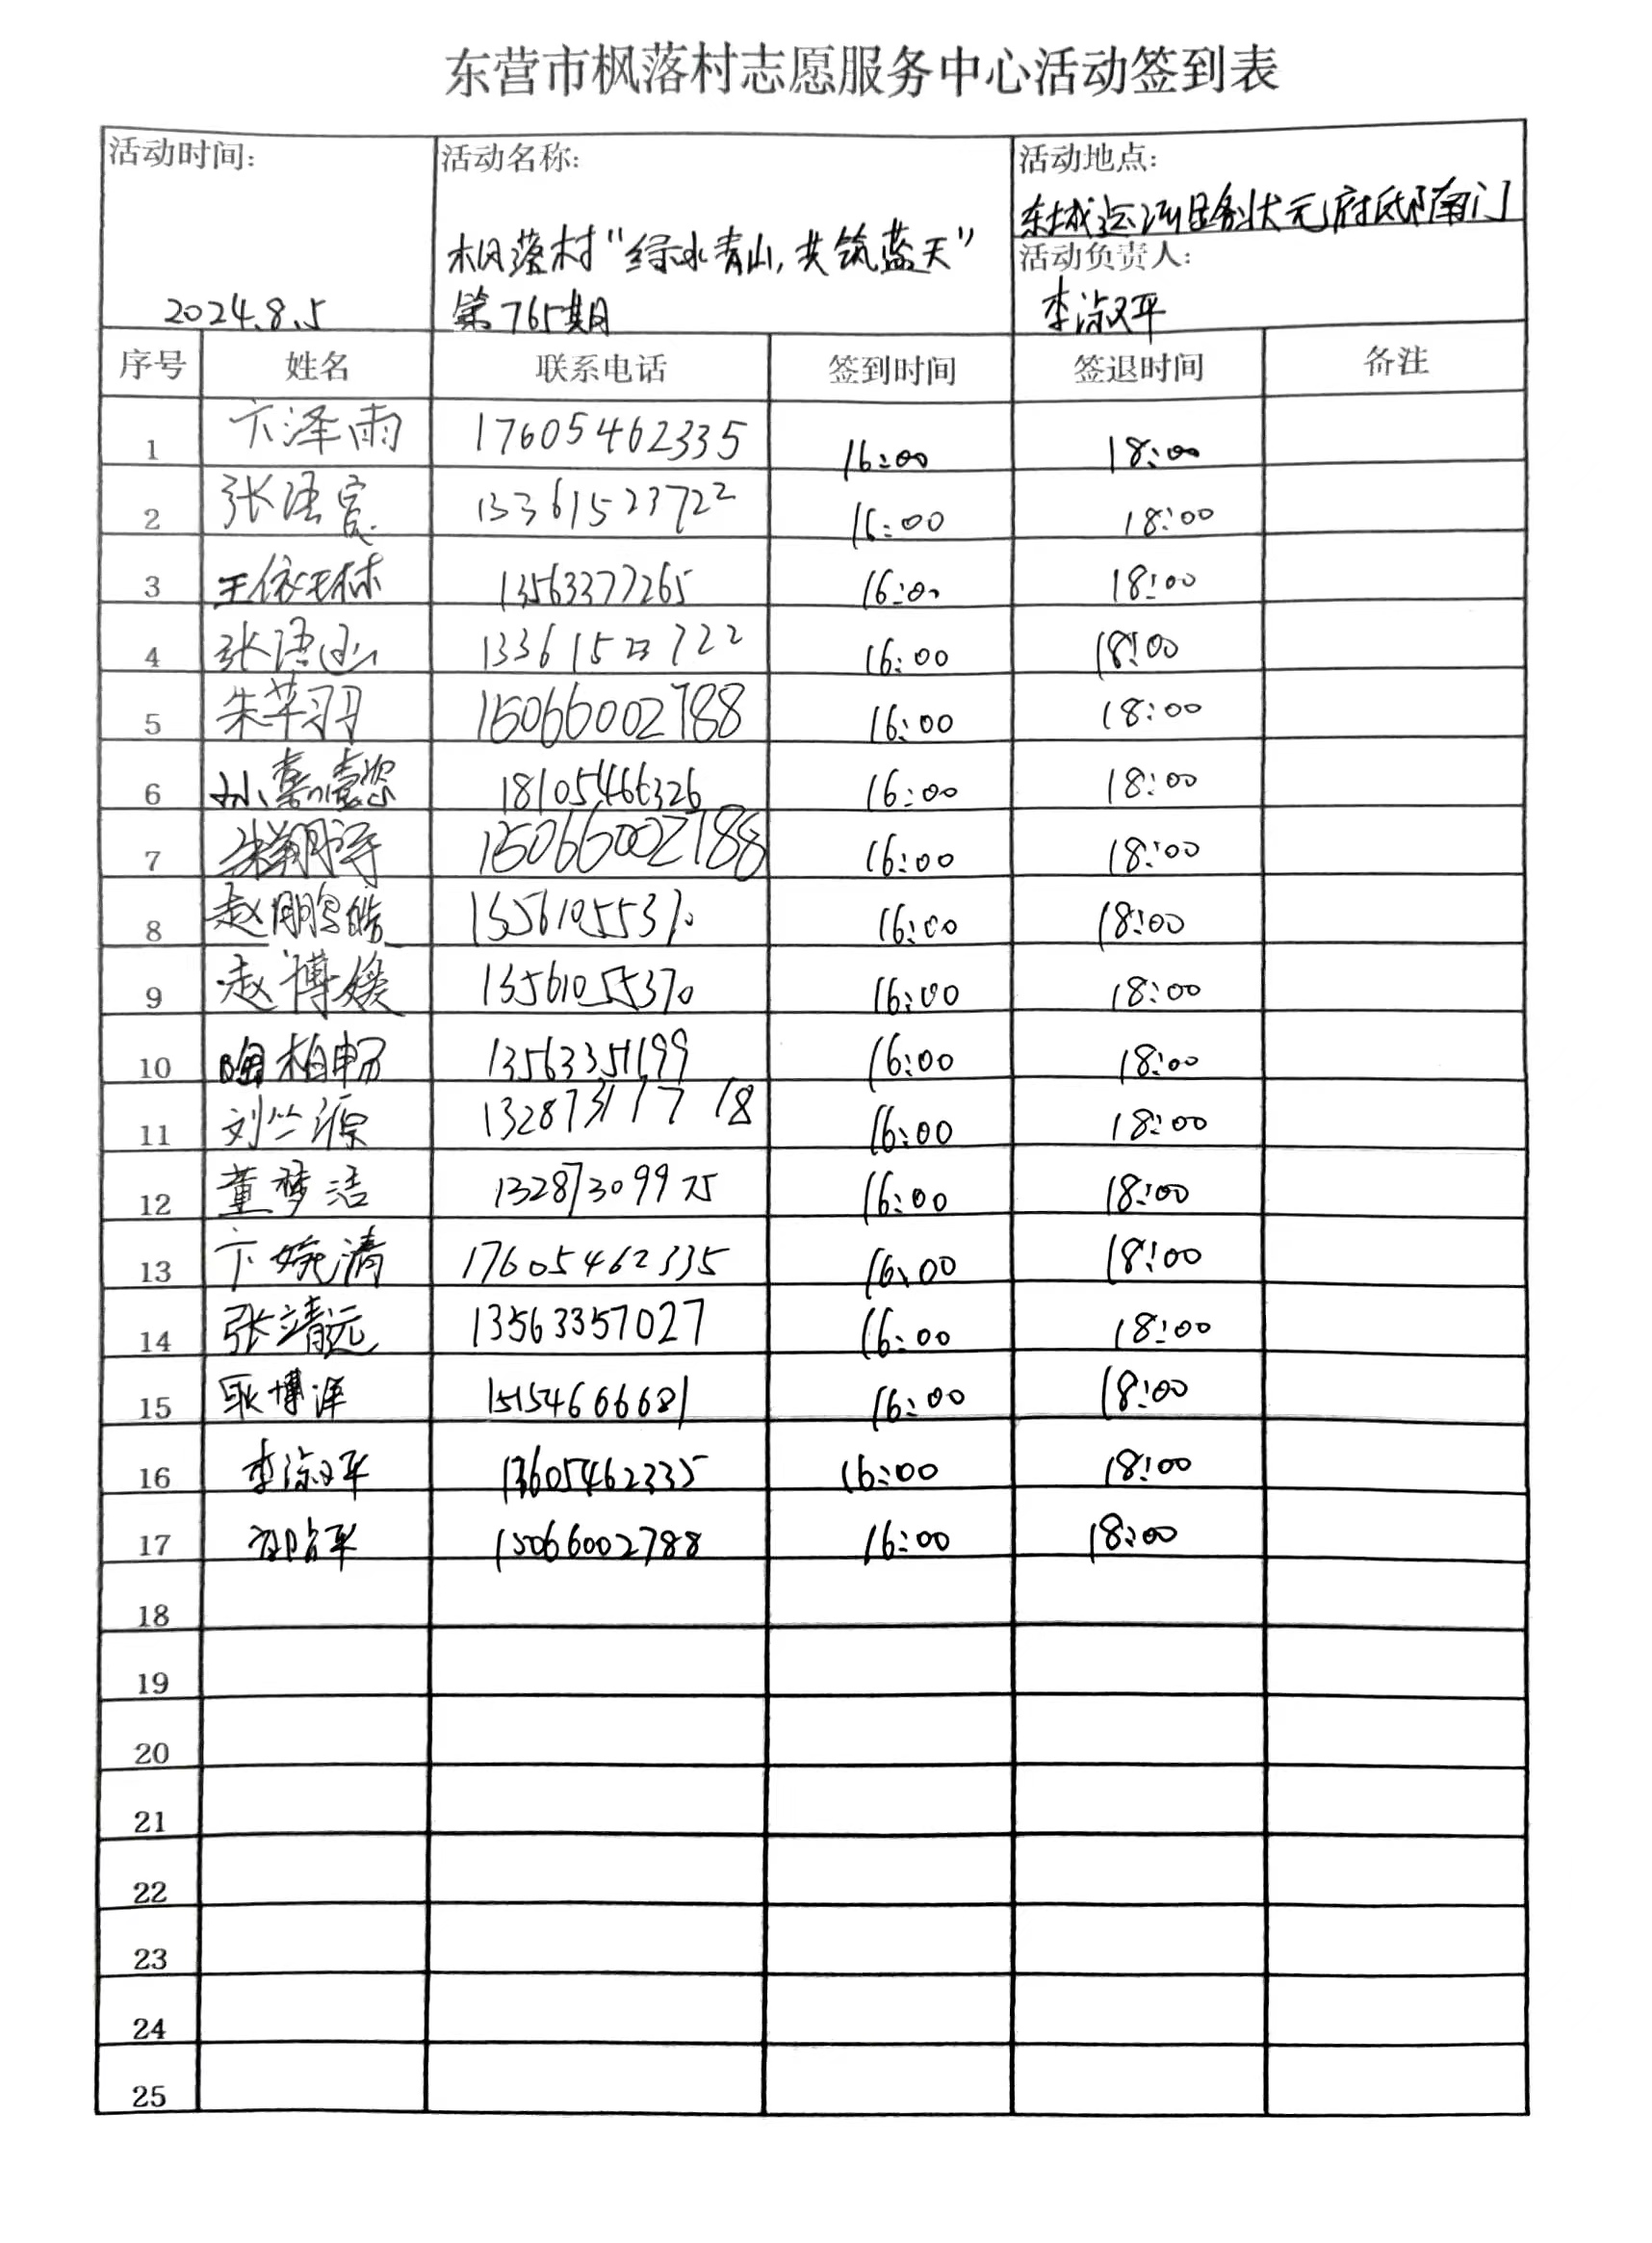 东营市枫落村志愿服务中心活动签到表
活动时间: 活动名称: 活动地点:
南门
枫落村“绿水青山,共筑蓝天” 活动负责人:
2024.8.5 第765期 李淑平
序号 姓名 联系电话 签到时间 签退时间 备注
1 卞泽雨 17605462335 16:00 18:00
2 张语宸 13361523722 16:00 18:00
3 王依琳 13563377265 16:00 18:00
4 张语 13361523722 16:00 18:00
5 朱芊羽 15066002788 16:00 18:00
6 孙熹懿 18105466326 16:00 18:00
7 朱翔宇 15066002788 16:00 18:00
8 赵鹏皓 13561055370 16:00 18:00
9 赵博媛 13561055370 16:00 18:00
10 陶柏畅 13563351199 16:00 18:00
11 刘竺源 13287317718 16:00 18:00
12 董梦洁 13287309975 16:00 18:00
13 卞婉清 17605462335 16:00 18:00
14 张靖远 13563357027 16:00 18:00
15 耿博泽 15154666681 16:00 18:00
16 李淑平 13605462335 16:00 18:00
17 15066002788 16:00 18:00
18
19
20
21
22
23
24
25